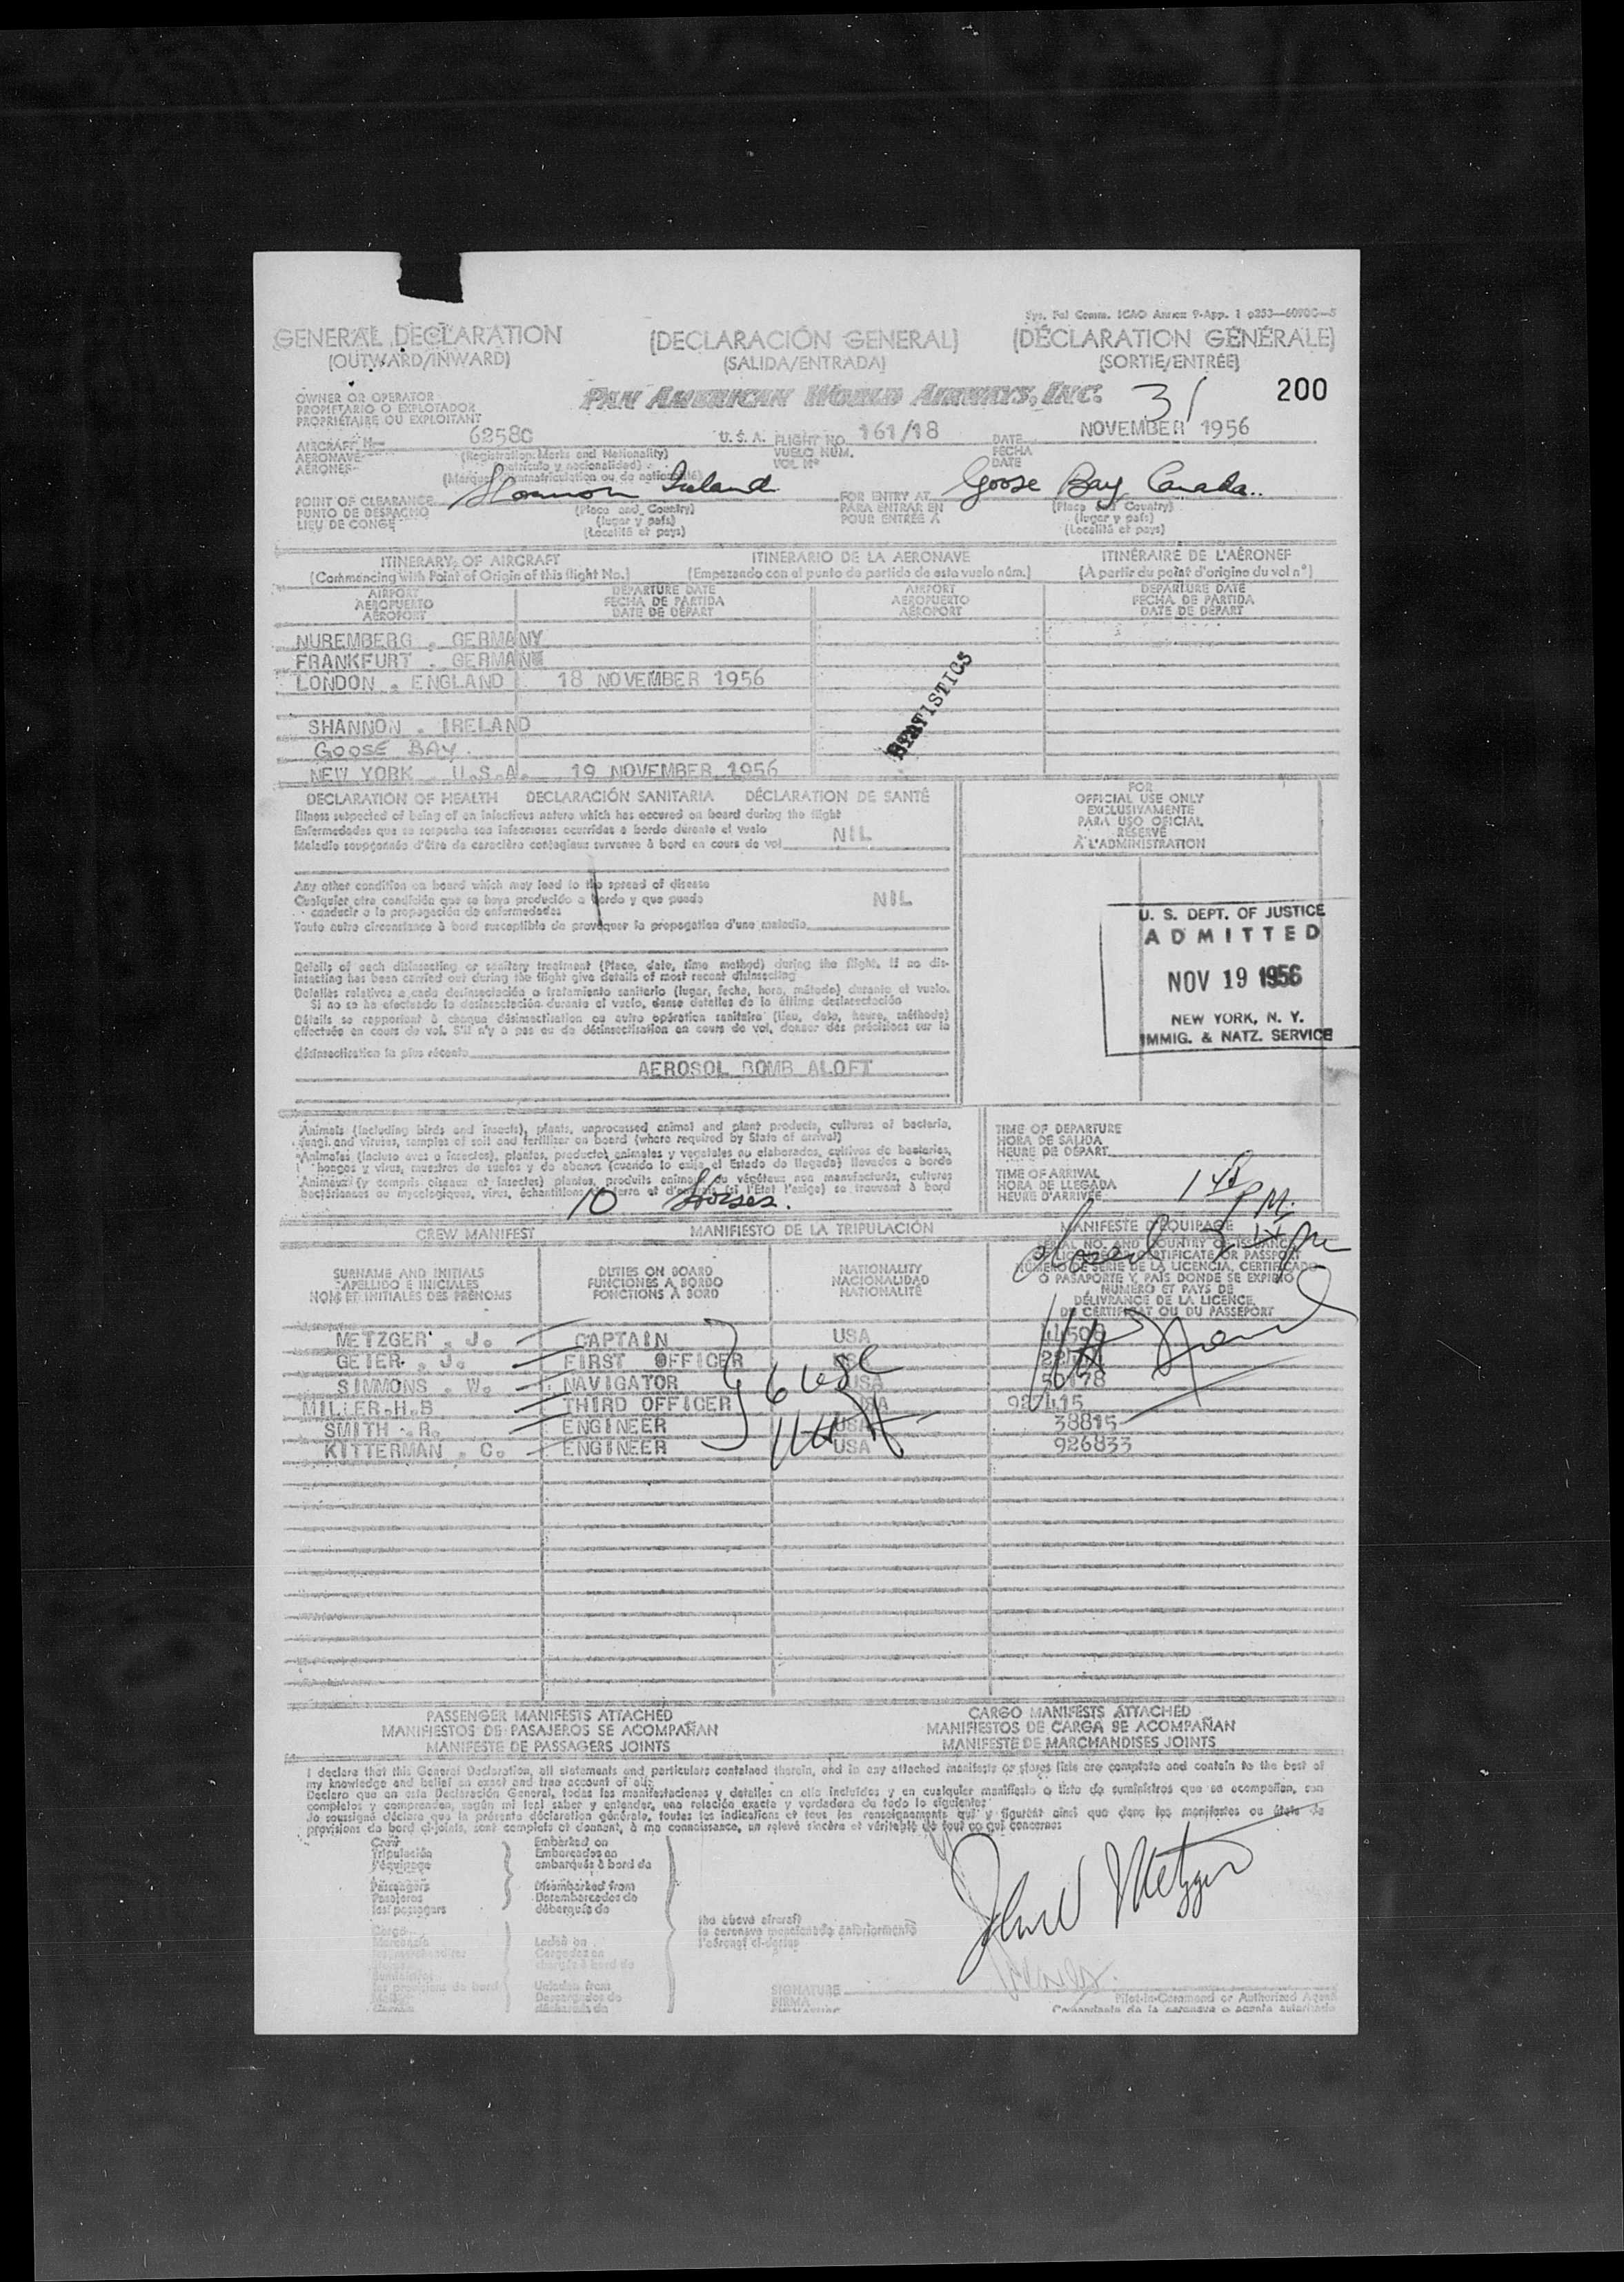 Annex 9-App. 1
GENERAL DECLARATION (DECLARACIÓN GENERAL) (DÉCLARATION GÉNÉRALE)
(OUTWARD/INWARD) (SALIDA/ENTRADA) (SORTIE/ENTRÉE)
OWNER OR OPERATOR
PROPIETARIO O EXPLOTADOR
PROPRIÉTAIRE OU EXPLOITANT
PAN AMERICAN WORLD AIRWAYS, INC. 31 200
AIRCRAFT 6258C U. S. A. FLIGHT NO. 161/18 DATE NOVEMBER 1956
AERONAVE (Registration Marks and Nationality) VUELO NÚM. FECHA
AÉRONEF (matrícula y nacionalidad) VOL Nº DATE
POINT OF CLEARANCE Shannon Ireland FOR ENTRY AT Goose Bay Canada
PUNTO DE DESPACHO (Place and Country) PARA ENTRAR EN (Place and Country)
LIEU DE CONGÉ (lugar y país) POUR ENTRÉE À (lugar y país)
(Localité et pays) (Localité et pays)
ITINERARY OF AIRCRAFT ITINERARIO DE LA AERONAVE ITINÉRAIRE DE L'AÉRONEF
(Commencing with Point of Origin of this flight No.) (Empezando con el punto de partida de este vuelo núm.) (À partir du point d'origine du vol n°)
AIRPORT DEPARTURE DATE AIRPORT DEPARTURE DATE
AEROPUERTO FECHA DE PARTIDA AEROPUERTO FECHA DE PARTIDA
AÉROPORT DATE DE DÉPART AÉROPORT DATE DE DÉPART
NUREMBERG . GERMANY
FRANKFURT . GERMANY
LONDON . ENGLAND 18 NOVEMBER 1956
STATISTICS
SHANNON . IRELAND
GOOSE BAY.
NEW YORK U.S.A. 19 NOVEMBER 1956
DECLARATION OF HEALTH DECLARACIÓN SANITARIA DÉCLARATION DE SANTÉ
Illness suspected of being of an infectious nature which has occured on board during the flight
Enfermedades que se sospecha sea infecciosas ocurridas a bordo durante el vuelo NIL
Maladie soupçonnée d'être de caractère contagieux survenue à bord en cours de vol
FOR
OFFICIAL USE ONLY
EXCLUSIVAMENTE
PARA USO OFICIAL
RÉSERVÉ
À L'ADMINISTRATION
Any other condition on board which may lead to the spread of disease
Cualquier otra condición que se haya producido a bordo y que puede NIL
conducir a la propagación de enfermedades
Toute autre circonstance à bord susceptible de provoquer la propagation d'une maladie
U. S. DEPT. OF JUSTICE
ADMITTED
NOV 19 1956
NEW YORK, N. Y.
IMMIG. & NATZ. SERVICE
Details of each disinsecting or sanitary treatment (Place, date, time method) during the flight. If no dis-
insecting has been carried out during the flight give details of most recent disinsecting
Detalles relativos a cada desinsectación o tratamiento sanitario (lugar, fecha, hora, método) durante el vuelo.
Si no se ha efectuado la desinsectación durante el vuelo, dense detalles de la última desinsectación
Détails se rapportant à chaque désinsectisation ou autre opération sanitaire (lieu, date, heure, méthode)
effectuée en cours de vol. S'il n'y a pas eu de désinsectisation en cours de vol, donner des précisions sur la
désinsectisation la plus récente
AEROSOL BOMB ALOFT
Animals (including birds and insects), plants, unprocessed animal and plant products, cultures of bacteria,
fungi and viruses, samples of soil and fertilizer on board (where required by State of arrival)
Animales (incluso aves e insectos), plantas, productos animales y vegetales no elaborados, cultivos de bacterias,
hongos y virus, muestras de suelos y de abonos (cuando lo exija el Estado de llegada) llevados a bordo
Animaux (y compris oiseaux et insectes) plantes, produits animaux ou végétaux non manufacturés, cultures
bactériennes ou mycologiques, virus, échantillons de terre et d'engrais (si l'Etat l'exige) se trouvant à bord
10 horses.
TIME OF DEPARTURE
HORA DE SALIDA
HEURE DE DÉPART
TIME OF ARRIVAL
HORA DE LLEGADA
HEURE D'ARRIVÉE
CREW MANIFEST MANIFIESTO DE LA TRIPULACIÓN MANIFESTE D'ÉQUIPAGE
SURNAME AND INITIALS DUTIES ON BOARD NATIONALITY
APELLIDO E INICIALES FUNCIONES A BORDO NACIONALIDAD
NOM ET INITIALES DES PRÉNOMS FONCTIONS À BORD NATIONALITÉ
SERIAL NO. AND COUNTRY OF ISSUANCE
NÚMERO DE SERIE DE LA LICENCIA, CERTIFICADO
O PASAPORTE Y PAÍS DONDE SE EXPIDIÓ
NUMÉRO ET PAYS DE
DÉLIVRANCE DE LA LICENCE,
DU CERTIFICAT OU DU PASSEPORT
METZGER . J. CAPTAIN USA
GETER . J. FIRST OFFICER
SIMMONS . W. NAVIGATOR USA
MILLER.H.B THIRD OFFICER 927415
SMITH . R. ENGINEER USA 38815
KITTERMAN . C. ENGINEER USA 926833
PASSENGER MANIFESTS ATTACHED CARGO MANIFESTS ATTACHED
MANIFIESTOS DE PASAJEROS SE ACOMPAÑAN MANIFIESTOS DE CARGA SE ACOMPAÑAN
MANIFESTE DE PASSAGERS JOINTS MANIFESTE DE MARCHANDISES JOINTS
I declare that this General Declaration, all statements and particulars contained therein, and in any attached manifests or stores lists are complete and contain to the best of
my knowledge and belief an exact and true account of all:
Declaro que en esta Declaración General, todas las manifestaciones y detalles en ella incluidos y en cualquier manifiesto o lista de suministros que se acompañen, son
completos y comprenden, según mi leal saber y entender, una relación exacta y verdadera de todo lo siguiente:
Je soussigné déclare que la présente déclaration générale, toutes les indications et tous les renseignements qui y figurent ainsi que dans les manifestes ou états de
provisions de bord ci-joints, sont complets et donnent, à ma connaissance, un relevé sincère et véritable de tout ce qui concerne:
Crew Embarked on
Tripulación Embarcados en
l'équipage embarqués à bord de
Passengers Disembarked from
Pasajeros Desembarcados de
les passagers débarqués de
the above aircraft
la aeronave mencionada anteriormente
l'aéronef ci-dessus
Laden on
Cargados en
chargés à bord de
Unladen from
Descargados de
John Metzger
SIGNATURE
FIRMA
Pilot-in-Command or Authorized Agent
Comandante de la aeronave o agente autorizado